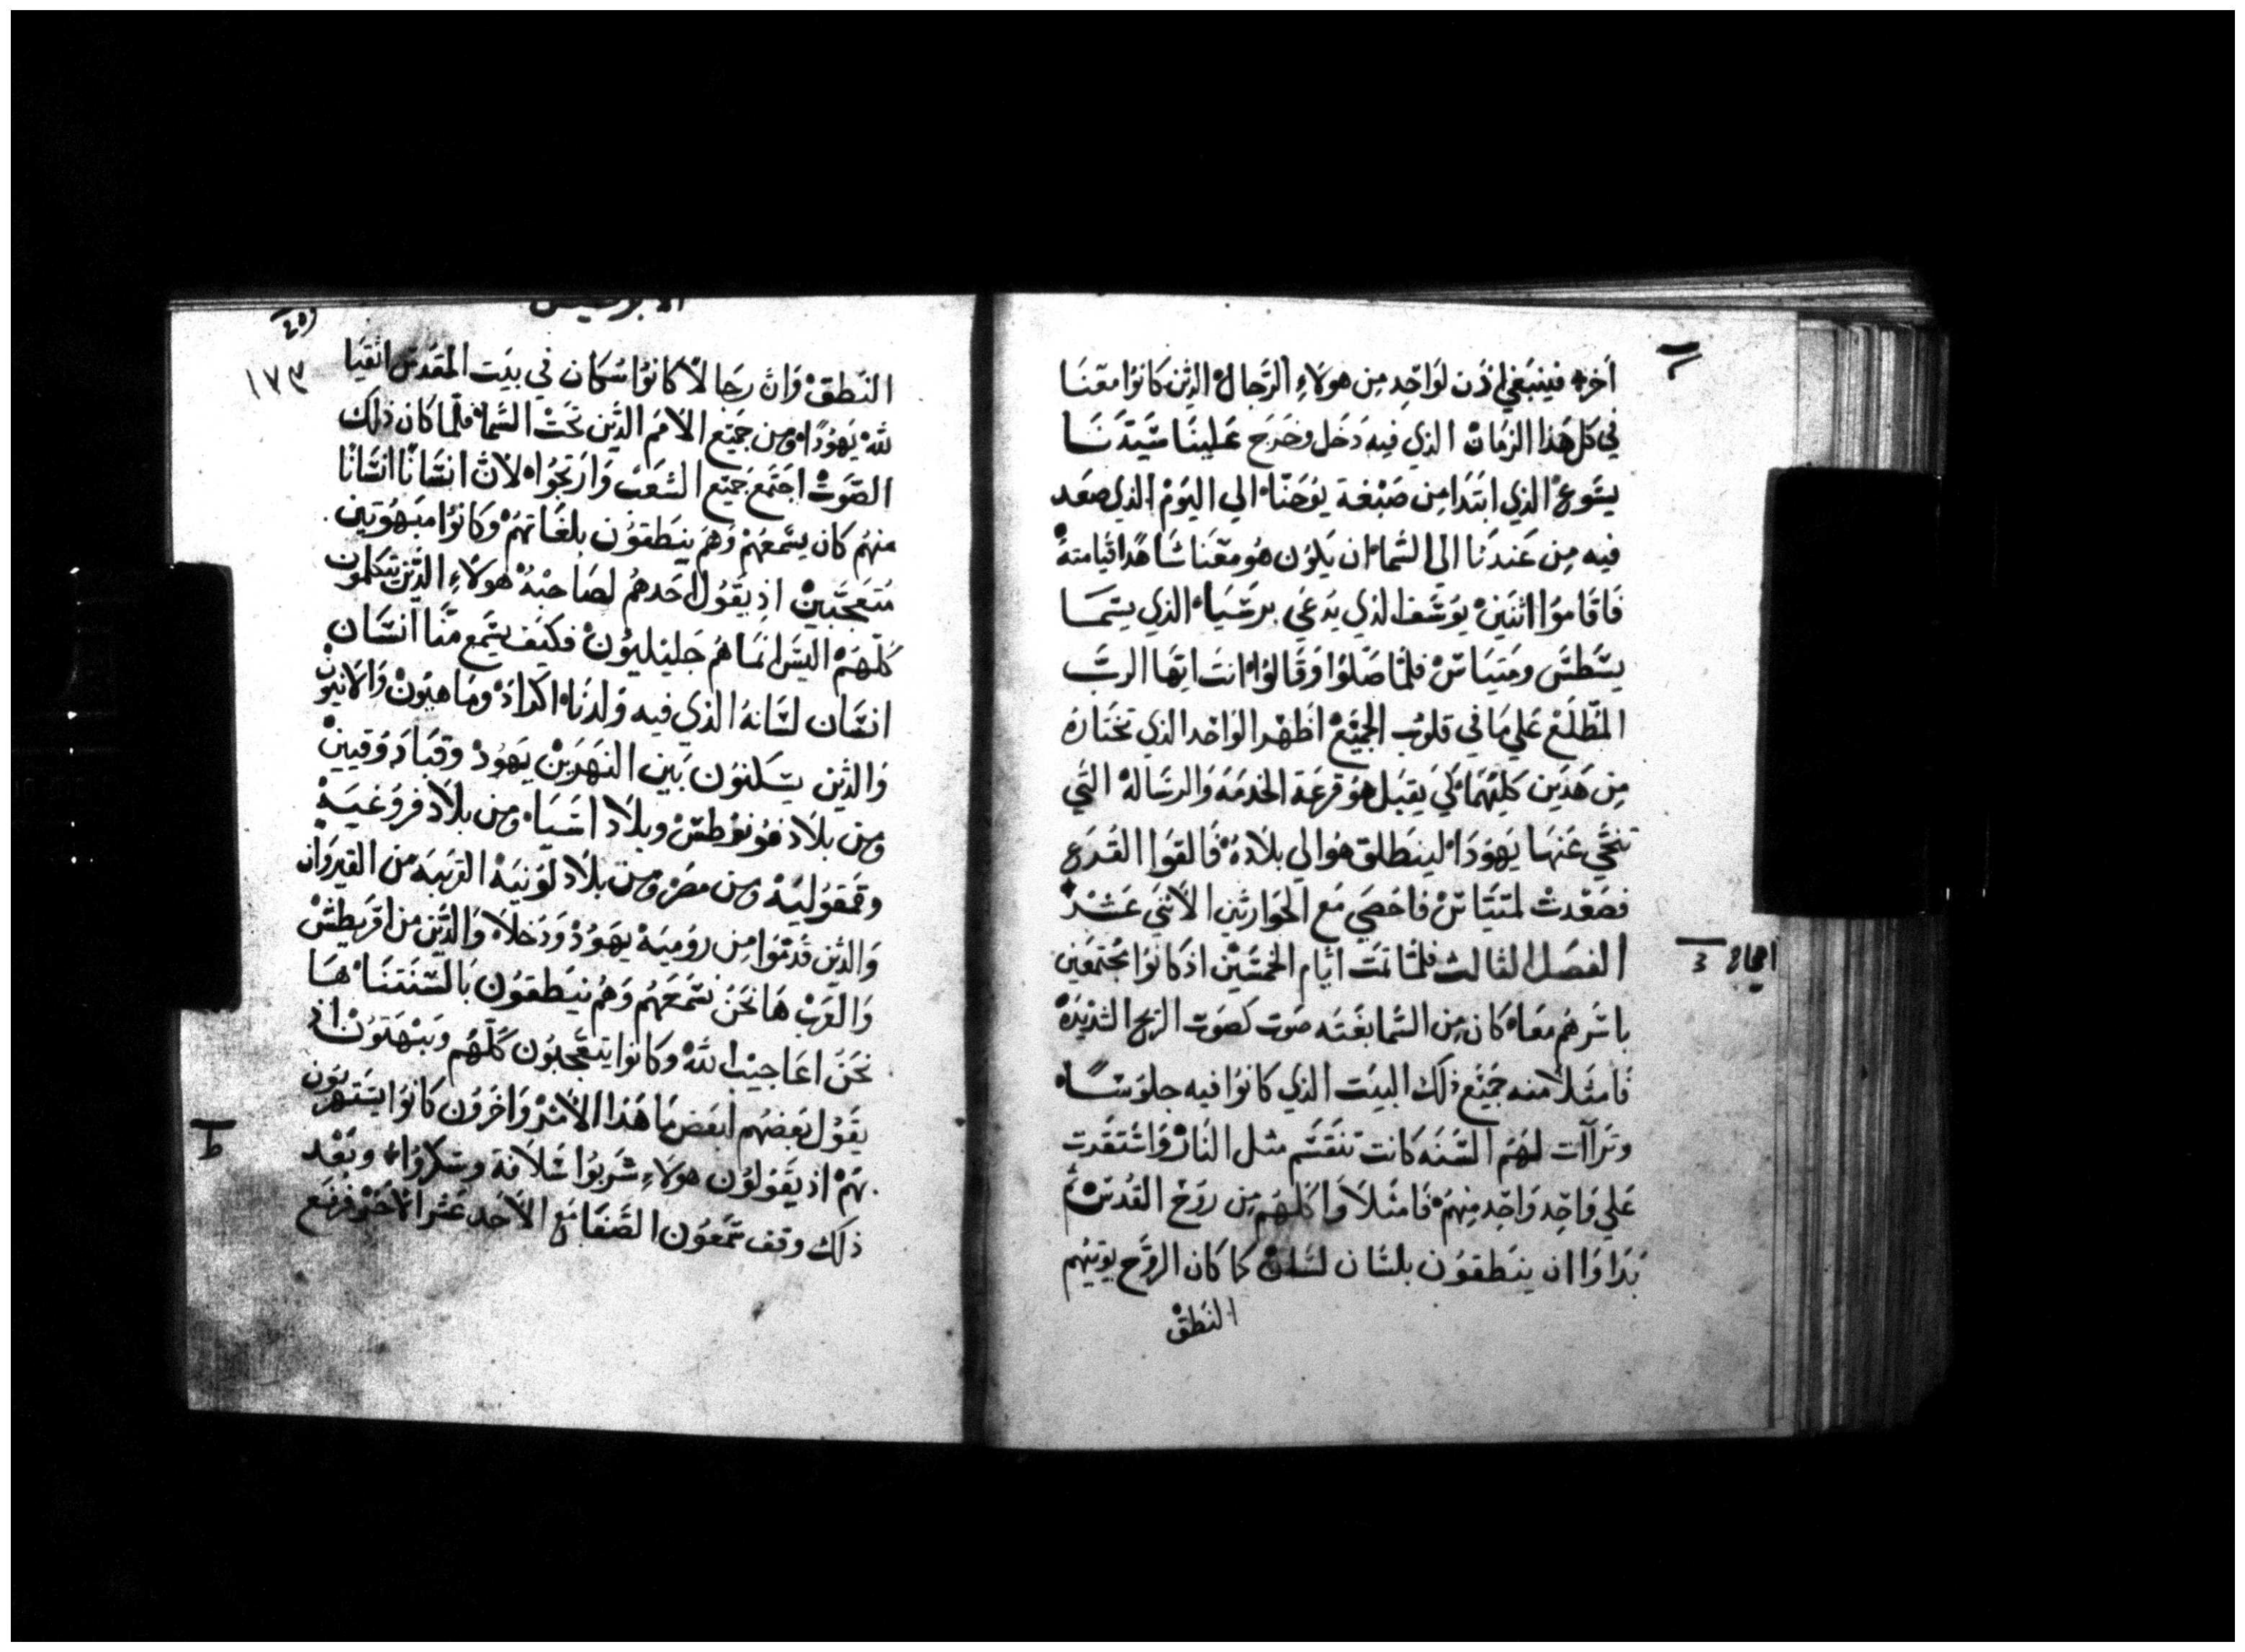 اخر فينبغي اذن لواحد من هولاءِ الرجال الذين كانوا معنا
في كل هذا الزمان الذي فيه دخل وخرج علينا سيدنا
يسوع الذي ابتدا من صبغة يوحنا الي اليوم الذي صعد
فيه من عندنا الي السما ان يكون هو معنا شاهدا قيامته
فاقاموا اثنين يوسف الذي يدعي برسيا الذي يسما
يسطس ومتياس فلما صلوا وقالوا انت ايها الرب
المطلع علي ما في قلوب الجميع اظهر الواحد الذي تختاره
من هذين كليهما كي يقبل هو قرعة الخدمه والرساله التي
تنحي عنها يهودا لينطلق هو الي بلاده فالقوا القرع
فصعدت لمتياس فاحصي مع الحواريين الاثني عشر
الفصل الثالث فلما تمت ايام الخمسين اذ كانوا مجتمعين
باسرهم معا كان من السما بغته صوت كصوت الريح الشديده
فامتلا منه جميع ذلك البيت الذي كانوا فيه جلوسًا
وتراآت لهم السنه كانت تنقسم مثل النار واستقرت
علي واحد واحد منهم فامتلاوا كلهم من روح القدس ثم
بداوا ان ينطقون بلسان لسان كما كان الروح يوتيهم
النطق
الابركسيس
١٧٣
النطق وان رجالا كانوا سكان في بيت المقدس اتقيا
لله يهودًا ومن جميع الامم الذين تحت السما فلما كان ذلك
الصوت اجتمع جميع الشعب وارتجوا لان انسانا انسانا
منهم كان يسمعهم وهم ينطقون بلغاتهم وكانوا مبهوتين
متعجبين اذ يقول احدهم لصاحبه هولاءِ الذين يتكلمون
كلهم اليس انما هم جليليون فكيف يسمع منا انسان
انسان لسانه الذي فيه ولدنا اكراد وماهيون والانيون
والذين يسكنون بين النهرين يهود وقبادوقيين
ومن بلاد فونوطس وبلاد اسيا ومن بلاد فروغيه
وقمفوليه ومن مصر ومن بلاد لونيه القريبه من القيروان
والذين قدموا من روميه يهود ودخلا والذين من اقريطش
والعرب ها نحن نسمعهم وهم ينطقون بالسنتنا ها
نحن اعاجيب الله وكانوا يتعجبون كلهم ويبهتون اذ
يقول بعضهم لبعض ما هذا الامر واخرون كانوا يستهزيون
بهم اذ يقولون هولاءِ شربوا سلافة وسكروا وبعد
ذلك وقف سمعون الصفا مع الاحد عشر الاخر فرفع